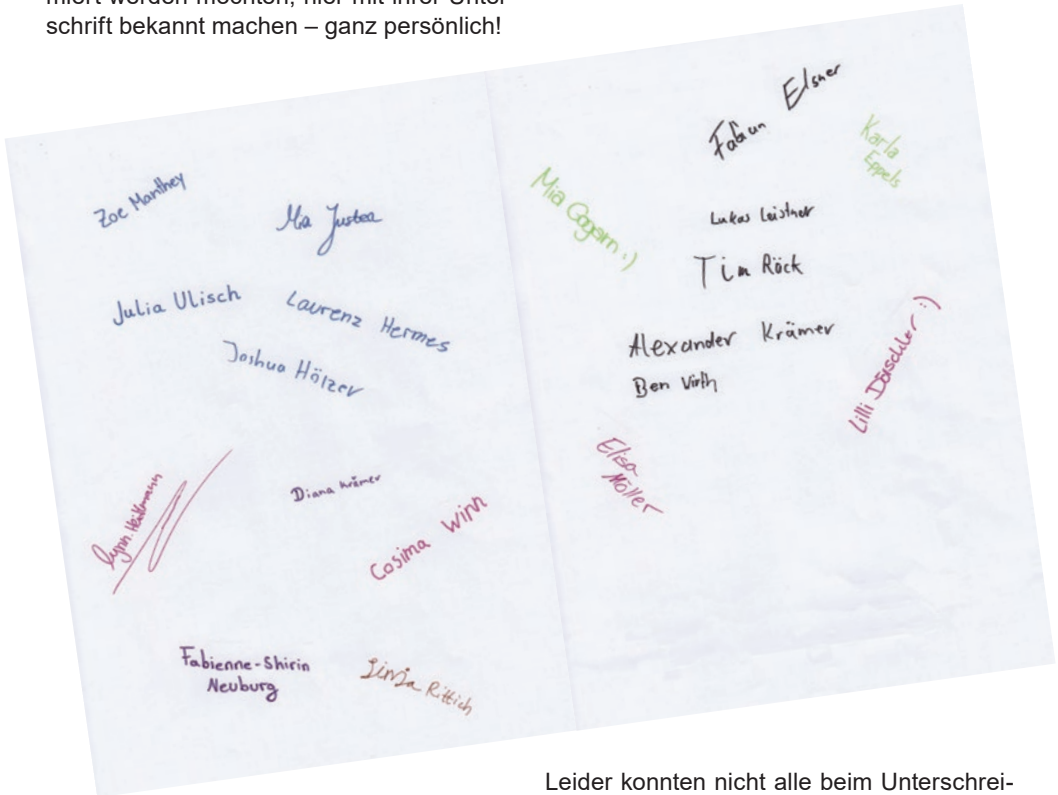 schrift bekannt machen – ganz persönlich!
Zoe Manthey
Mia Justen
Julia Ulisch
Laurenz Hermes
Joshua Hölzer
Lynn
Diana Krämer
Cosima Winn
Fabienne-Shirin
Neuburg
Rittich
Fabian Elsner
Karla
Eppels
Mia :)
Lukas Leistner
Tim Röck
Alexander Krämer
Ben Wirth
Lilli :)
Elisa
Möller
Leider konnten nicht alle beim Unterschrei-